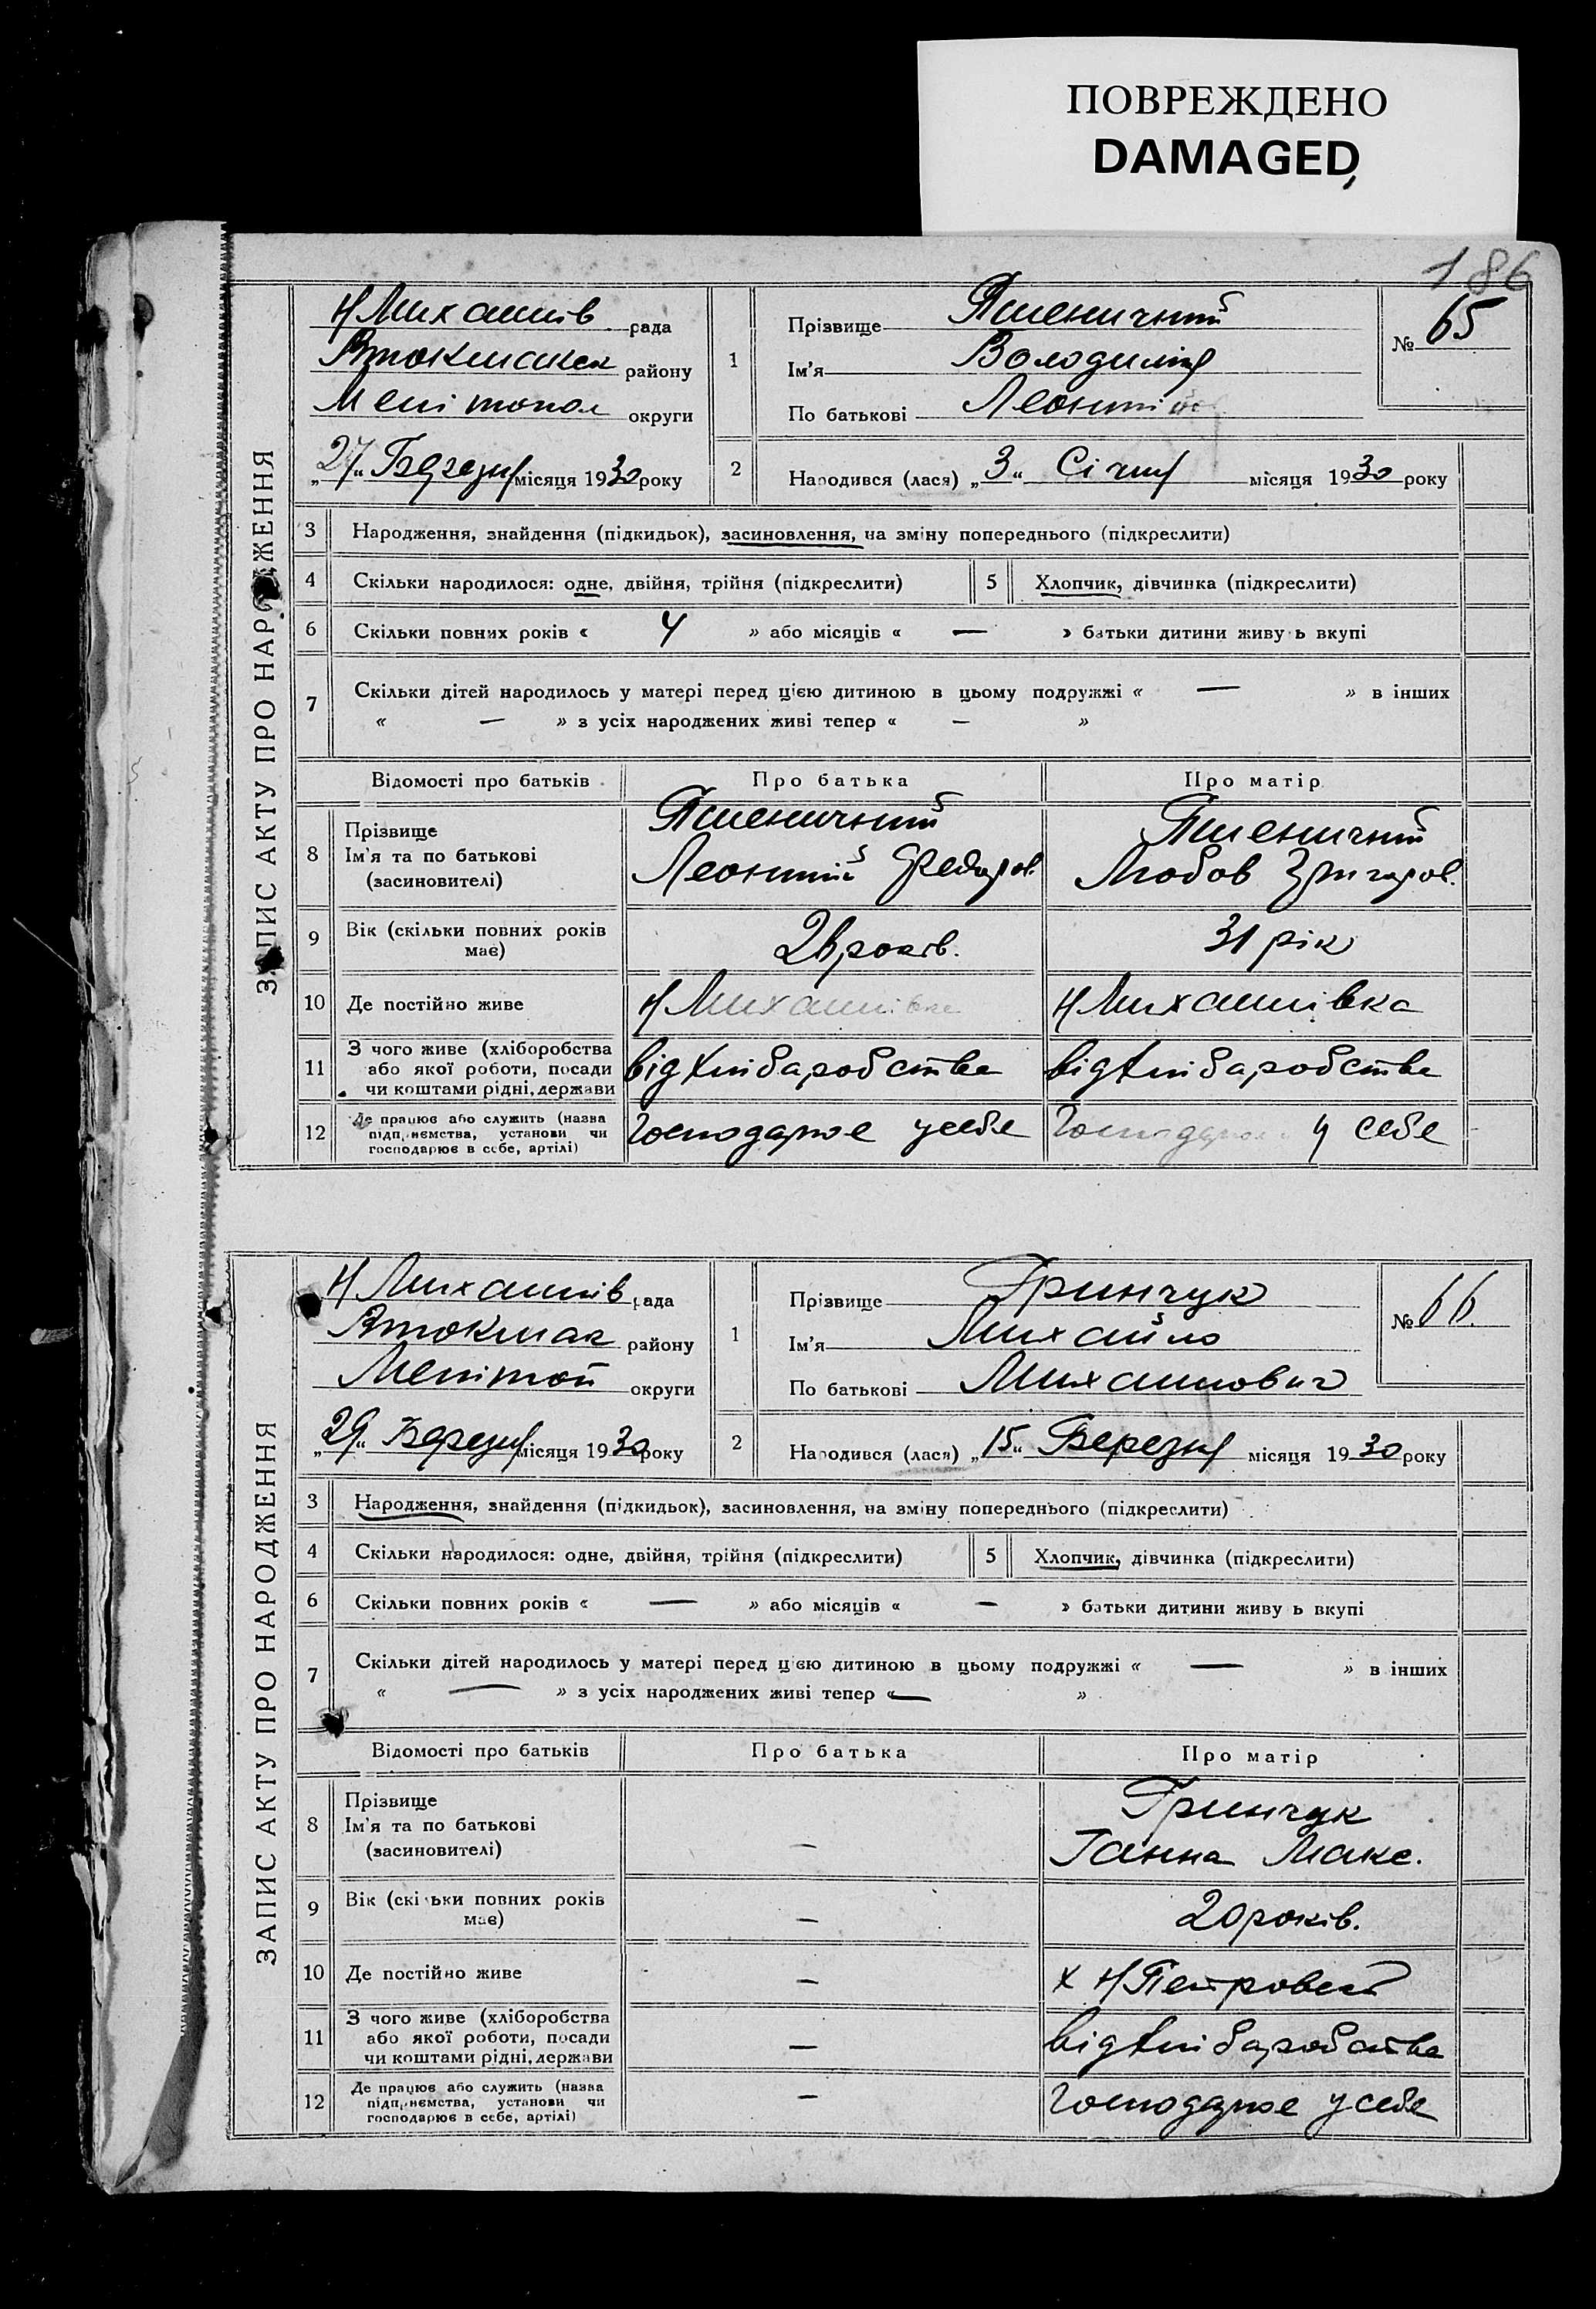 ПОВРЕЖДЕНО
DAMAGED
186
ЗАПИС АКТУ ПРО НАРОДЖЕННЯ
Н Михайлів рада
Втокмакск району
Мелітопол округи
„27“ Березня місяця 1930 року
1
Прізвище Пшеничний
Ім'я Володимір
По батькові Леонтійов
№ 65
2
Народився (лася) „3“ Січня місяця 1930 року
3 Народження, знайдення (підкидьок), засиновлення, на зміну попереднього (підкреслити)
4 Скільки народилося: одне, двійня, трійня (підкреслити) 5 Хлопчик, дівчинка (підкреслити)
6 Скільки повних років « 4 » або місяців « — » батьки дитини живуть вкупі
7 Скільки дітей народилось у матері перед цією дитиною в цьому подружжі « — » в інших
« — » з усіх народжених живі тепер « — »
Відомості про батьків Про батька Про матір
8 Прізвище
Ім'я та по батькові
(засиновителі)
Пшеничний
Леонтій Федоров.
Пшеничний
Любов Григоров.
9 Вік (скільки повних років
має)
років. 31 рік
10 Де постійно живе Н Михайлівка Н Михайлівка
11 З чого живе (хліборобства
або якої роботи, посади
чи коштами рідні, держави
від хліборобства від хліборобства
12 Де працює або служить (назва
підприємства, установи чи
господарює в себе, артілі)
Господарює у себе Господарює у себе
ЗАПИС АКТУ ПРО НАРОДЖЕННЯ
Н Михайлів рада
Втокмак району
Мелітоп округи
„29“ Березня місяця 1930 року
1
Прізвище Гринчук
Ім'я Михайло
По батькові Михайлович
№ 66.
2
Народився (лася) „15“ Березня місяця 1930 року
3 Народження, знайдення (підкидьок), засиновлення, на зміну попереднього (підкреслити)
4 Скільки народилося: одне, двійня, трійня (підкреслити) 5 Хлопчик, дівчинка (підкреслити)
6 Скільки повних років « — » або місяців « — » батьки дитини живуть вкупі
7 Скільки дітей народилось у матері перед цією дитиною в цьому подружжі « — » в інших
« — » з усіх народжених живі тепер « — »
Відомості про батьків Про батька Про матір
8 Прізвище
Ім'я та по батькові
(засиновителі)
—
Гринчук
Ганна Макс.
9 Вік (скільки повних років
має)
— 20 років.
10 Де постійно живе — х Н
11 З чого живе (хліборобства
або якої роботи, посади
чи коштами рідні, держави
— від хліборобства
12 Де працює або служить (назва
підприємства, установи чи
господарює в себе, артілі)
— Господарює у себе